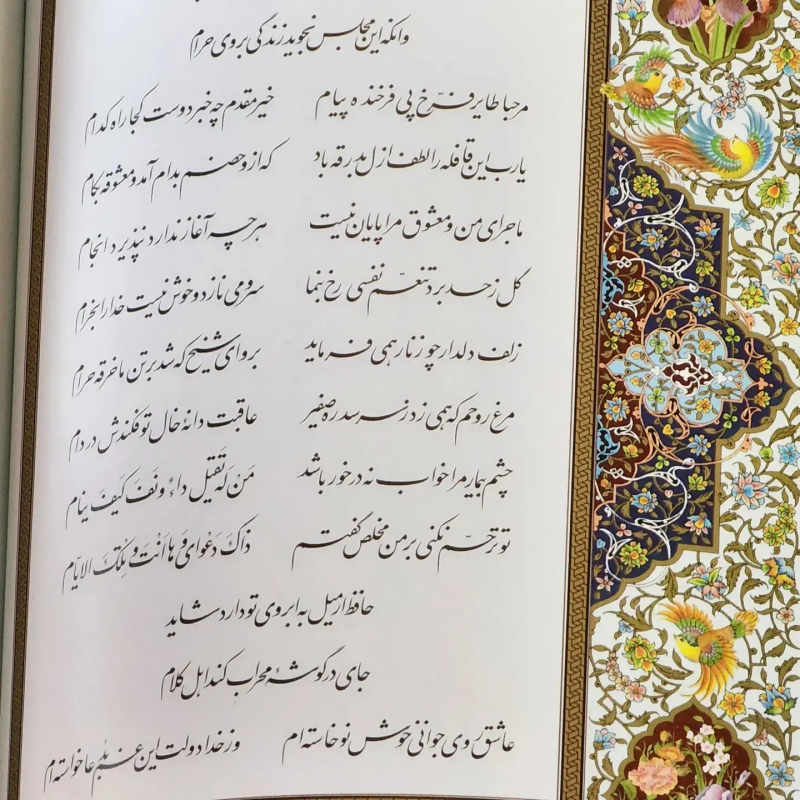 وانکه این مجلس نجوید زندگی بر وی حرام
مرحبا طایر فرّخ پی فرخنده پیام خیر مقدم چه خبر دوست کجا راه کدام
یارب این قافله را لطف ازل بدرقه باد که ازو خصم بدام آمد و معشوقه بکام
ماجرای من و معشوق مرا پایان نیست هرچه آغاز ندارد نپذیرد انجام
گل ز حد برد تنعّم نفسی رخ بنما سرو می نازد و خوش نیست خدا را بخرام
زلف دلدار چو زنار همی فرماید برو ای شیخ که شد بر تن ما خرقه حرام
مرغ روحم که همی زد ز سر سدره صفیر عاقبت دانهٔ خال تو فکندش در دام
چشم بیمار مرا خواب نه در خور باشد مَن لَه تقیل داءٌ ونَفَ کَیفَ ینام
تو ترحّم نکنی بر من مخلص گفتم ذاکَ دَعوایَ وَها اَنتَ و تِلکَ الایّام
حافظ ار میل به ابروی تو دارد شاید
جای در گوشهٔ محراب کنند اهل کلام
عاشق روی جوانی خوش نوخاسته ام وز خدا دولت این غم بدعا خواسته ام